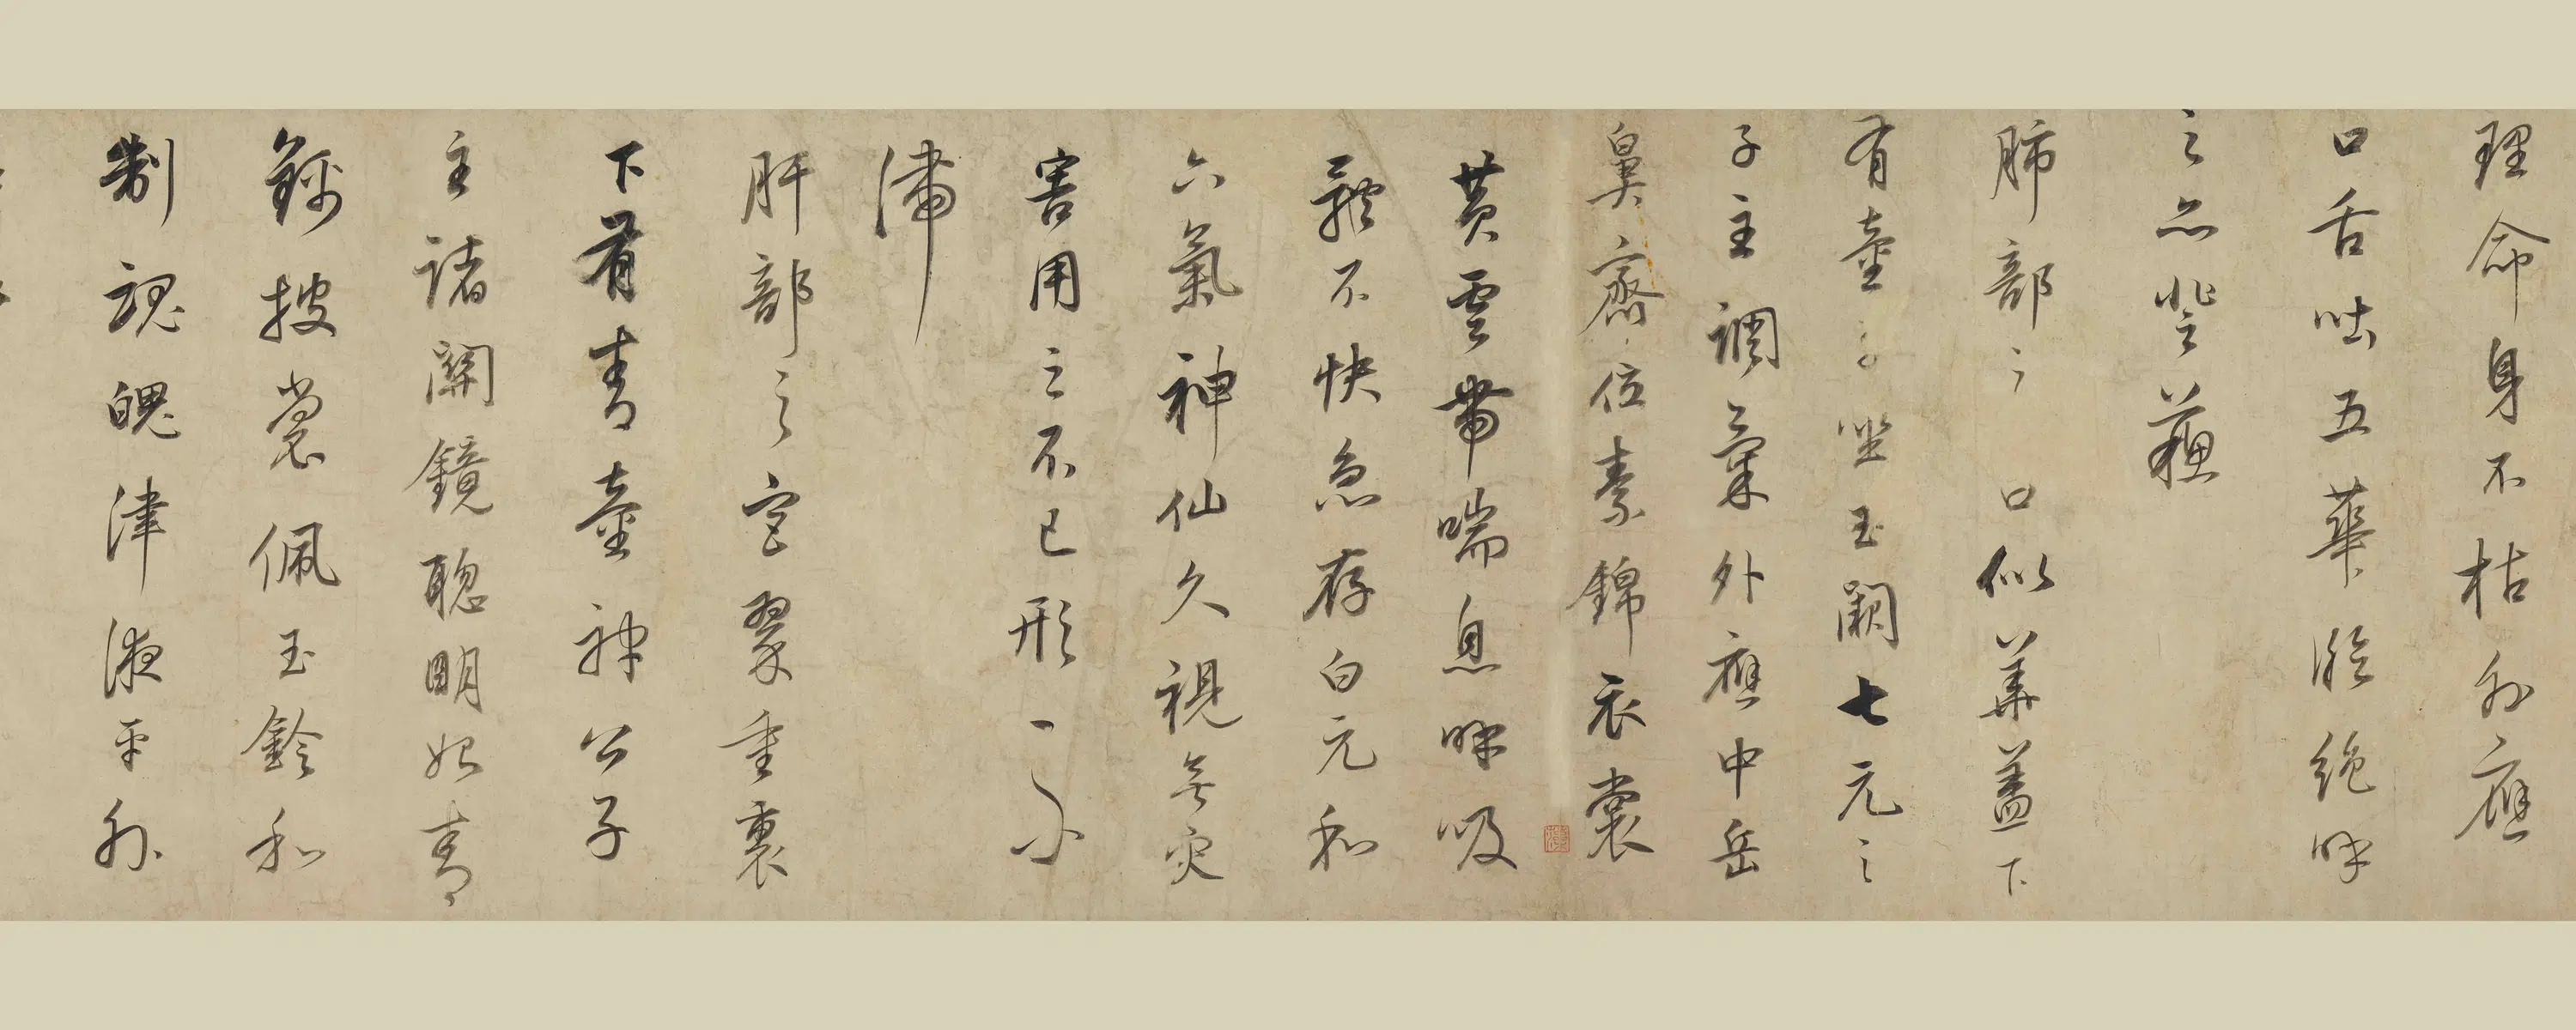 理命身不枯外應
口舌吐五華臨絕呼
之亦登蘇
肺部之口似華蓋下
有童子坐玉闕七元之
子主調氣外應中岳
鼻齋位素錦衣裳
黃雲帶喘息呼吸
體不快急存白元和
六氣神仙久視無灾
害用之不已形不
滯
肝部之宮翠重裏
下有青童神公子
主諸關鏡聰明始青
錦披裳佩玉鈴和
制魂魄津液平外